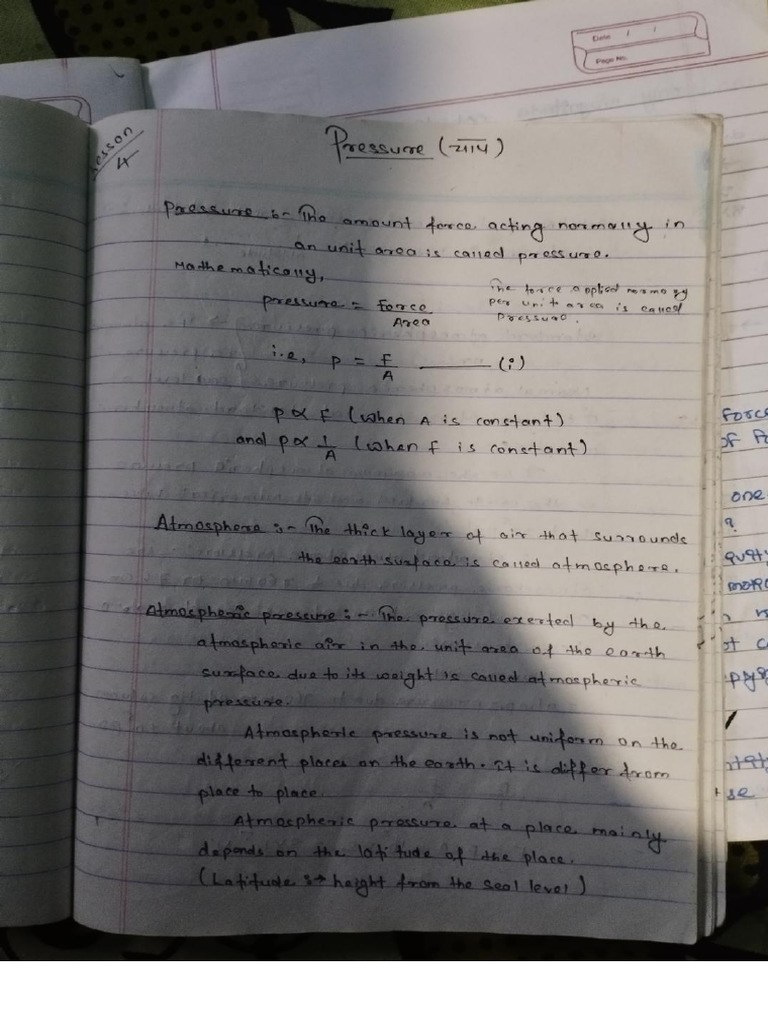 Date / /
Page No.
Lesson
4
Pressure (चाप)
Pressure :- The amount force acting normally in
an unit area is called pressure.
Mathematically,
pressure = force
Area
The force applied normaly
per unit area is called
Pressure.
i.e, p = F
A (i)
p ∝ F (when A is constant)
and p ∝ 1
A (when f is constant)
Atmosphere :- The thick layer of air that surrounds
the earth surface is called atmosphere.
Atmospheric pressure :- The pressure exerted by the
atmospheric air in the unit area of the earth
surface due to its weight is called atmospheric
pressure.
Atmospheric pressure is not uniform on the
different places on the earth. It is differ from
place to place.
Atmospheric pressure at a place mainly
depends on the latitude of the place.
(Latitude :→ height from the seal level)
force
of
one
?
more
se